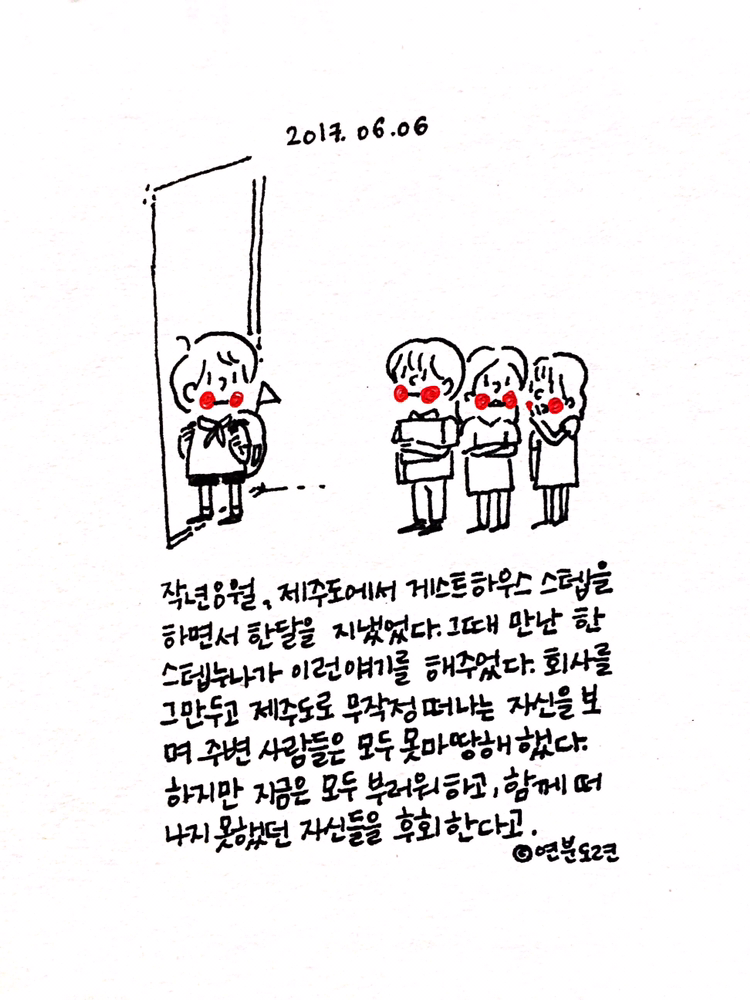 2017. 06.06
작년 8월, 제주도에서 게스트하우스 스텝을
하면서 한달을 지냈었다. 그때 만난 한
스텝누나가 이런 얘기를 해주었다. 회사를
그만두고 제주도로 무작정 떠나는 자신을 보
며 주변 사람들은 모두 못마땅해 했다.
하지만 지금은 모두 부러워하고, 함께 떠
나지 못했던 자신들을 후회한다고.
©연분도련